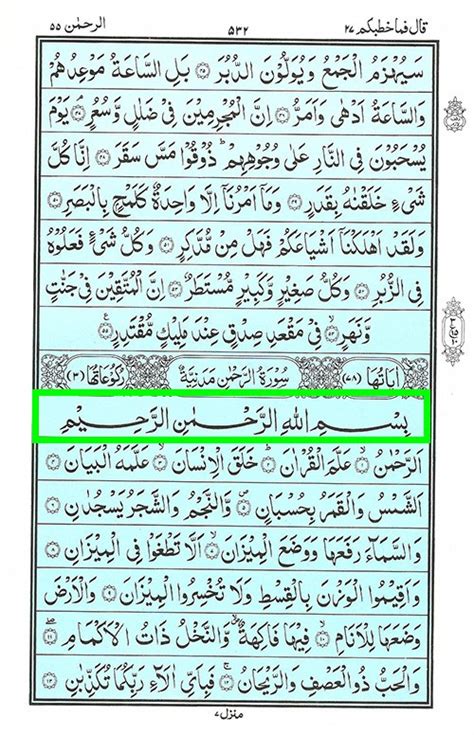 قال فما خطبكم ٢٧ ٥٣٢ الرحمٰن ٥٥
سَيُهْزَمُ الْجَمْعُ وَيُوَلُّوْنَ الدُّبُرَ ﴿٤٥﴾ بَلِ السَّاعَةُ مَوْعِدُهُمْ
وَالسَّاعَةُ اَدْهٰى وَاَمَرُّ ﴿٤٦﴾ اِنَّ الْمُجْرِمِيْنَ فِيْ ضَلٰلٍ وَّسُعُرٍ ﴿٤٧﴾ يَوْمَ
يُسْحَبُوْنَ فِي النَّارِ عَلٰى وُجُوْهِهِمْ ؕ ذُوْقُوْا مَسَّ سَقَرَ ﴿٤٨﴾ اِنَّا كُلَّ
شَيْءٍ خَلَقْنٰهُ بِقَدَرٍ ﴿٤٩﴾ وَمَاۤ اَمْرُنَاۤ اِلَّا وَاحِدَةٌ كَلَمْحٍۭ بِالْبَصَرِ ﴿٥٠﴾
وَلَقَدْ اَهْلَكْنَاۤ اَشْيَاعَكُمْ فَهَلْ مِنْ مُّدَّكِرٍ ﴿٥١﴾ وَكُلُّ شَيْءٍ فَعَلُوْهُ
فِي الزُّبُرِ ﴿٥٢﴾ وَكُلُّ صَغِيْرٍ وَّكَبِيْرٍ مُّسْتَطَرٌ ﴿٥٣﴾ اِنَّ الْمُتَّقِيْنَ فِيْ جَنّٰتٍ
وَّنَهَرٍ ﴿٥٤﴾ فِيْ مَقْعَدِ صِدْقٍ عِنْدَ مَلِيْكٍ مُّقْتَدِرٍ ﴿٥٥﴾
اٰيَاتُهَا (٧٨) سُوْرَةُ الرَّحْمٰنِ مَدَنِيَّةٌ رُكُوْعَاتُهَا (٣)
بِسْمِ اللّٰهِ الرَّحْمٰنِ الرَّحِيْمِ
اَلرَّحْمٰنُ ﴿١﴾ عَلَّمَ الْقُرْاٰنَ ﴿٢﴾ خَلَقَ الْاِنْسَانَ ﴿٣﴾ عَلَّمَهُ الْبَيَانَ ﴿٤﴾
اَلشَّمْسُ وَالْقَمَرُ بِحُسْبَانٍ ﴿٥﴾ وَّالنَّجْمُ وَالشَّجَرُ يَسْجُدٰنِ ﴿٦﴾
وَالسَّمَآءَ رَفَعَهَا وَوَضَعَ الْمِيْزَانَ ﴿٧﴾ اَلَّا تَطْغَوْا فِي الْمِيْزَانِ ﴿٨﴾
وَاَقِيْمُوا الْوَزْنَ بِالْقِسْطِ وَلَا تُخْسِرُوا الْمِيْزَانَ ﴿٩﴾ وَالْاَرْضَ
وَضَعَهَا لِلْاَنَامِ ﴿١٠﴾ فِيْهَا فَاكِهَةٌ وَّالنَّخْلُ ذَاتُ الْاَكْمَامِ ﴿١١﴾
وَالْحَبُّ ذُو الْعَصْفِ وَالرَّيْحَانُ ﴿١٢﴾ فَبِاَيِّ اٰلَآءِ رَبِّكُمَا تُكَذِّبٰنِ ﴿١٣﴾
منزل ٧